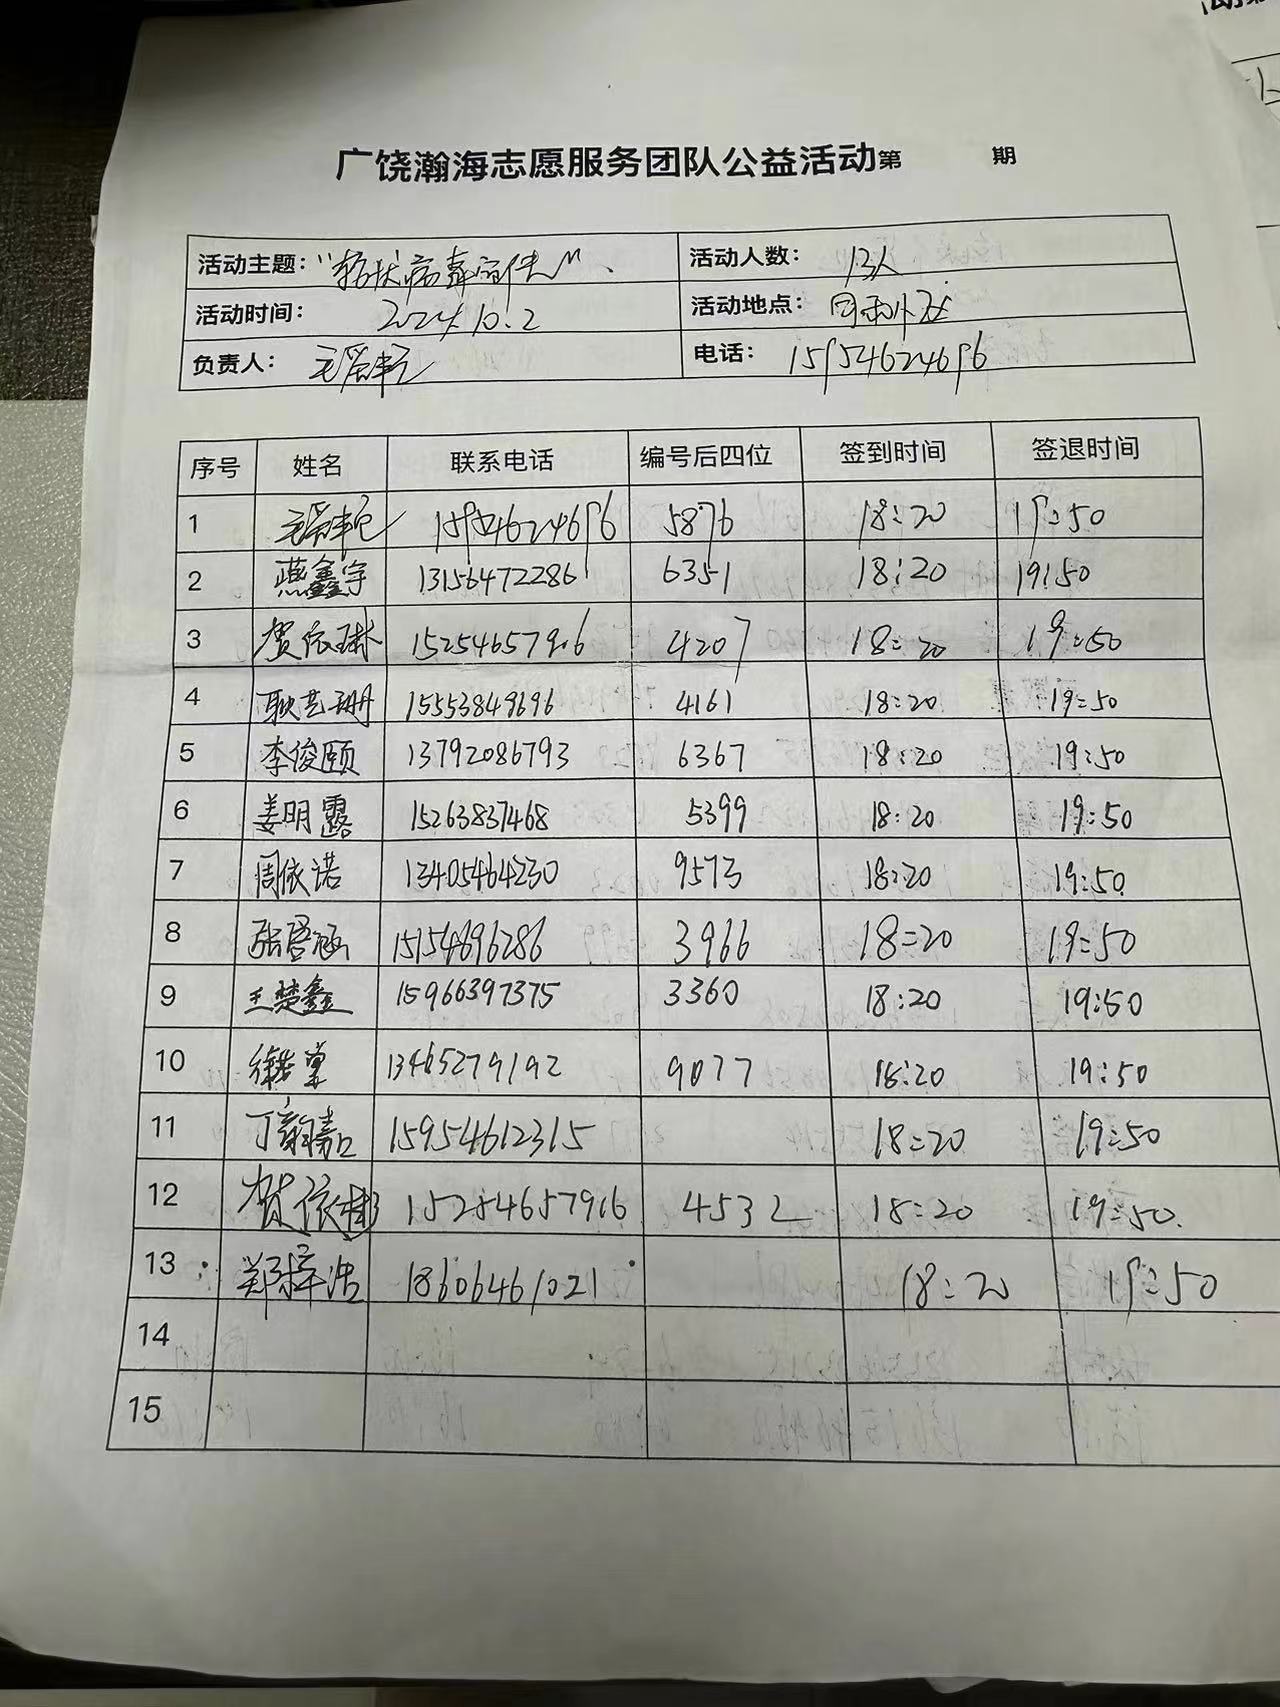 广饶瀚海志愿服务团队公益活动第 期
活动主题： 活动人数：13人
活动时间：2024.10.2 活动地点：
负责人： 电话：15954624696
序号 姓名 联系电话 编号后四位 签到时间 签退时间
1 15954624696 5876 18:20 19:50
2 燕鑫宇 13156472286 6351 18:20 19:50
3 贺依琳 15254657916 4207 18:20 19:50
4 耿艺珊 15553849696 4161 18:20 19:50
5 李俊颐 13792086793 6367 18:20 19:50
6 姜明露 15263837468 5399 18:20 19:50
7 周依诺 13405464230 9573 18:20 19:50
8 15154696286 3966 18:20 19:50
9 王楚鑫 15966397375 3360 18:20 19:50
10 13465279192 9077 18:20 19:50
11 15954612315 18:20 19:50
12 贺依彬 15254657916 4532 18:20 19:50.
13 郑梓浩 18606461021 18:20 19:50
14
15